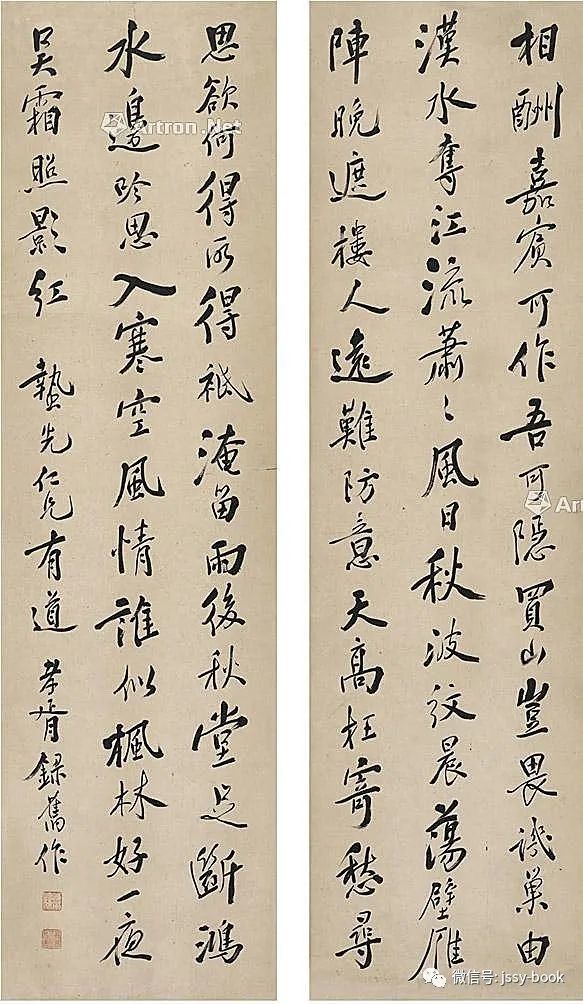 相酬嘉賓可作吾可隱買山豈畏譏巢由
漢水奪江流蕭〻風日秋波紋晨蕩壁雁
陣晚遮樓人遠難防意天高枉寄愁尋
思欲何得所得祇淹留雨後秋堂足斷鴻
水邊吟思入寒空風情誰似楓林好一夜
吳霜照影紅 蟄先仁兄有道 孝胥錄舊作
Artron.Net
Art
微信号: jssy-book